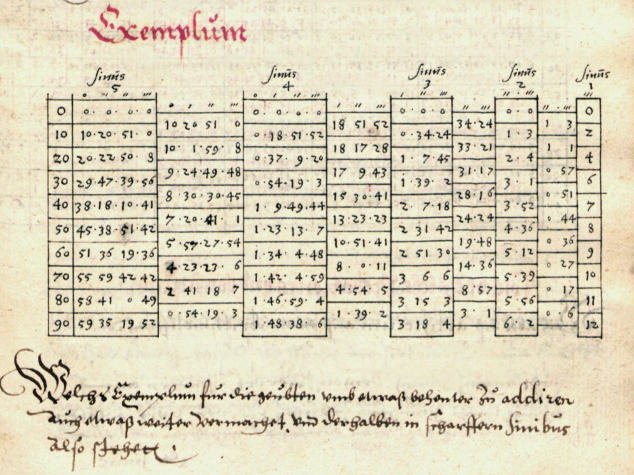 Exemplum
sinus sinus sinus sinus sinus
5 4 3 2 1
0 0 · 0 · 0 · 0 0 · 0 · 0 · 0 0 · 0 · 0 0 · 0 0
10 20 51 0 18 51 52 34·24 1 3
10 10·20·51·0 0·18·51·52 0·34·24 1·3 2
10·1·59·8 18 17 28 33·21 1 1
20 20·22·50·8 0·37·9·20 1·7·45 2·4 4
9·24·49·48 17 9·43 31·17 0 57
30 29·47·39·56 0·54·19·3 1·39·2 3·1 6
8·30·30·45 15 30·41 28·16 0 51
40 38·18·10·41 1·9·49·44 2·7·18 3·52 7
7·20·41·1 13·23·23 24·24 0 44
50 45·38·51·42 1·23·13·7 2 31 42 4·36 8
5·57·27·54 10·51·41 19·48 0 36
60 51 36 19·36 1·34·4·48 2 51 30 5·12 9
4·23·23·6 8·0·11 14·36 0 27
70 55 59 42 42 1·42·4·59 3 6 6 5·39 10
2 41 18 7 4·54·5 8·57 0 17
80 58 41 0 49 1·46·59·4 3 15 3 5·56 11
0·54·19·3 1·39·2 3·1 0 6
90 59 35 19 52 1·48·38·6 3 18 4 6·2 12
Welchs Exemplum für die geübten umb etwaß behenter zu addiren
Auch etwaß weiter vermachet, und derhalben in scharffern sinibus
also stehet.